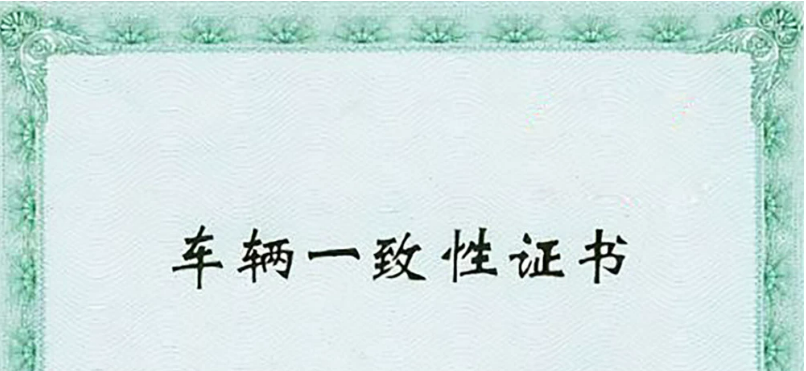 车辆一致性证书